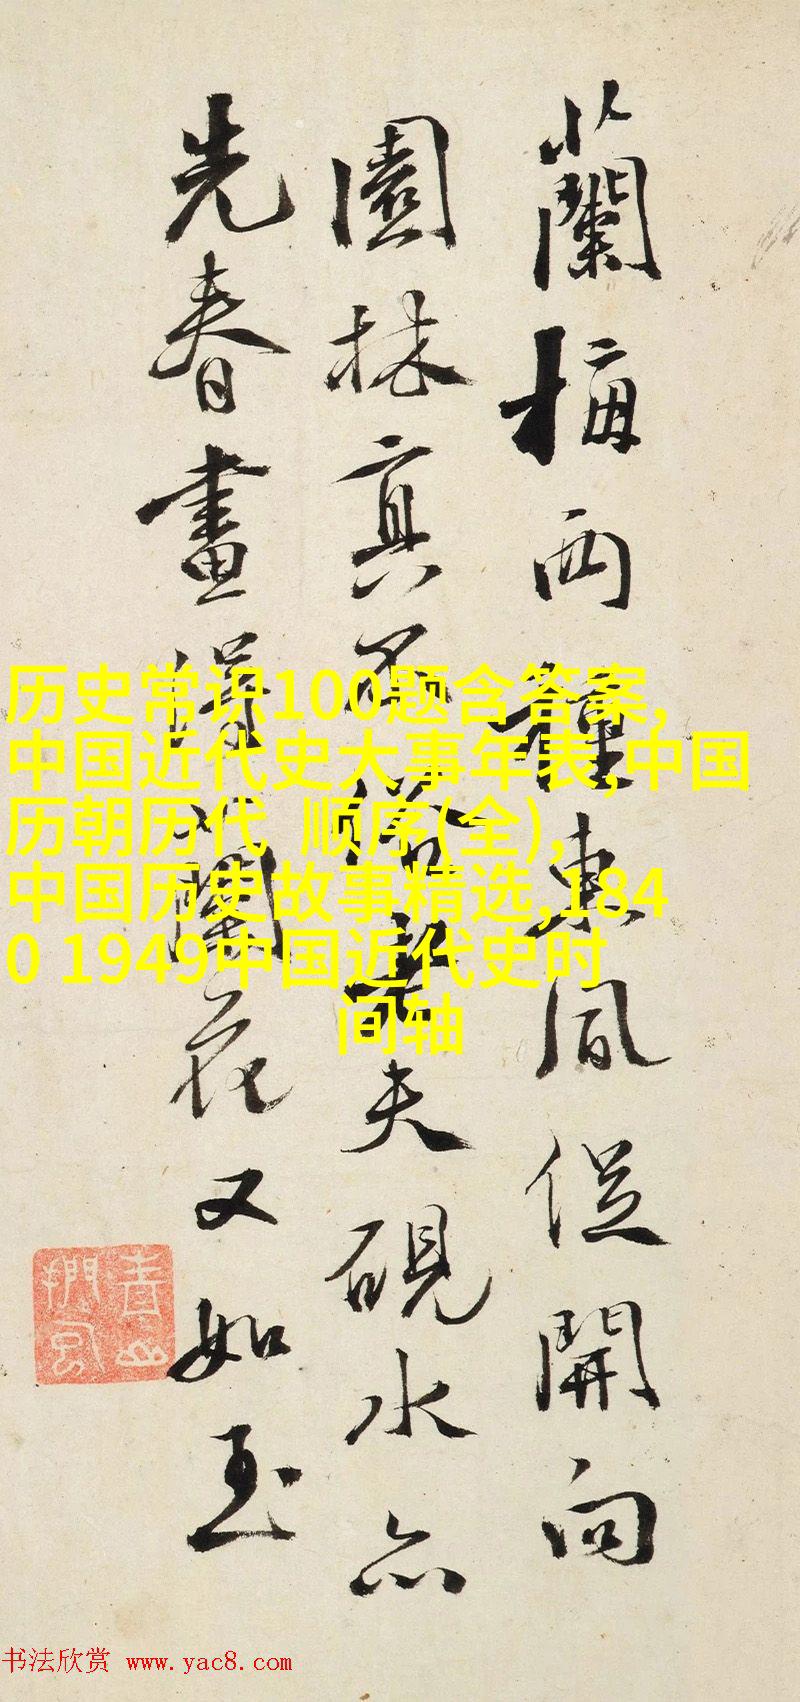 蘭梅两種東風促開向
園林真不俗老夫硯水亦
先春畫得蘭花又如玉
历史常识100题含答案,
中国近代史大事年表,中国
历朝历代 顺序(全),
中国历史故事精选,184
0 1949中国近代史时
间轴
书法欣赏 www.yac8.com